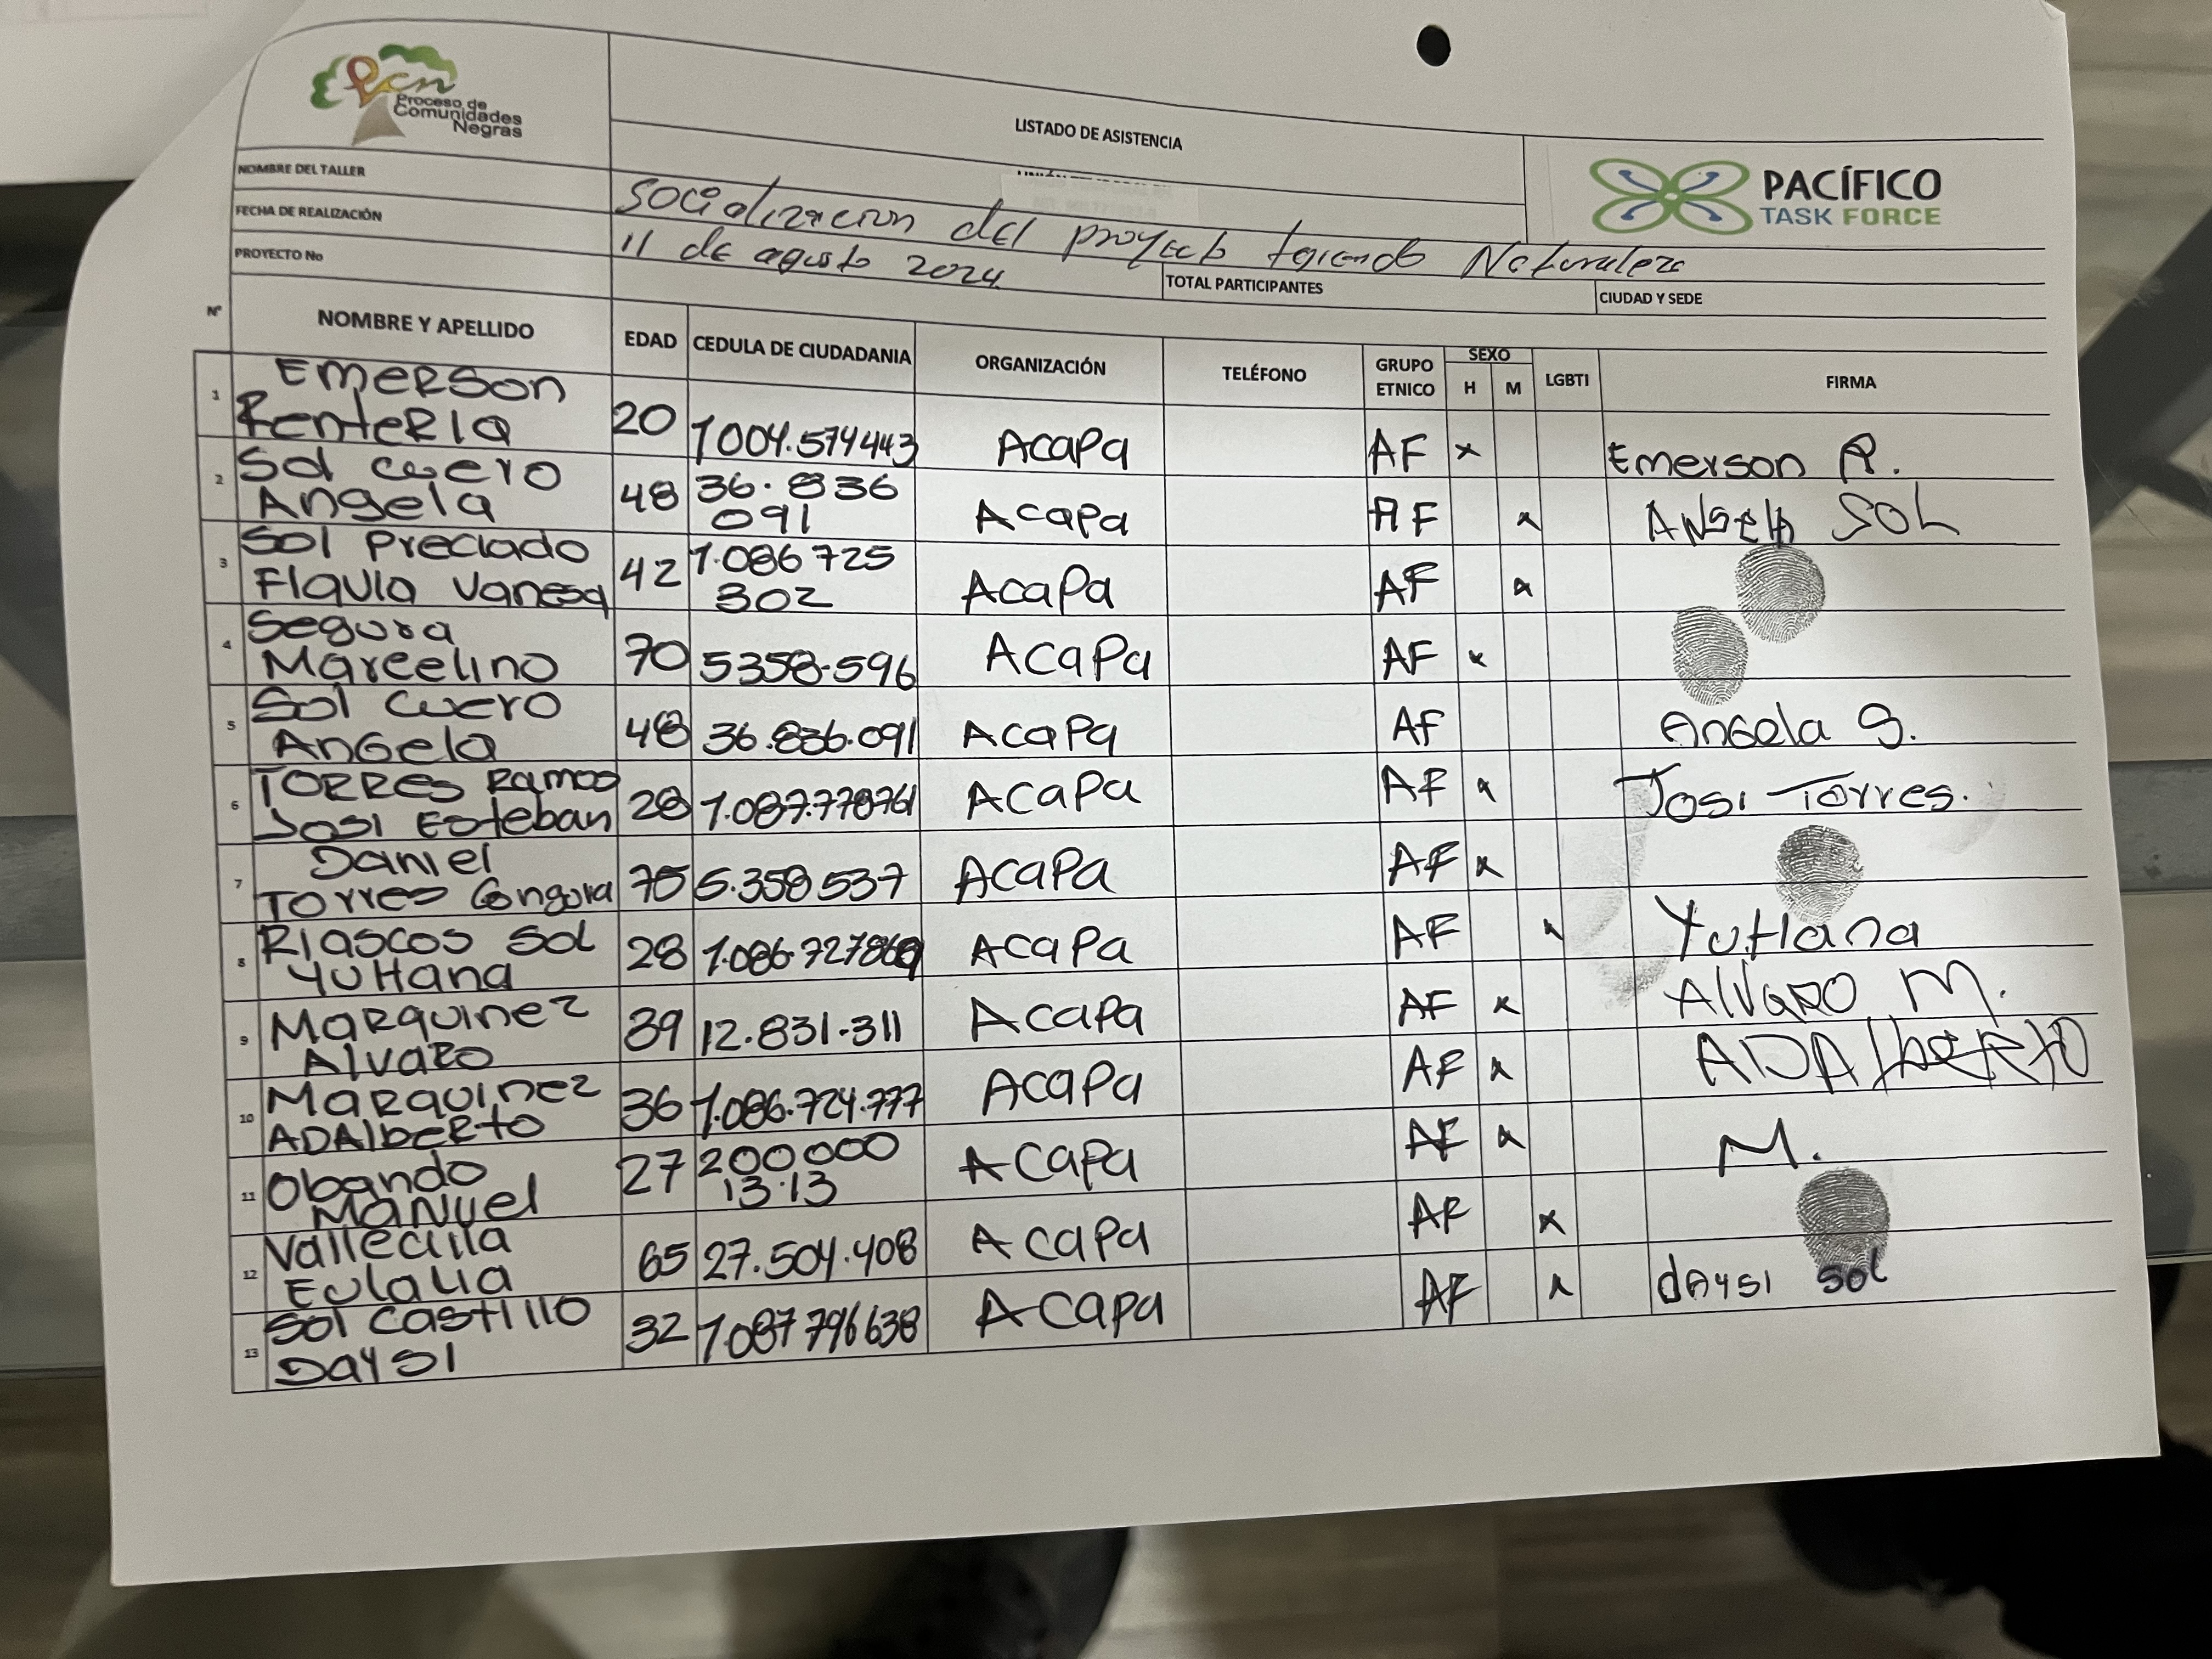 Pcn
Proceso de
Comunidades
Negras
LISTADO DE ASISTENCIA
PACÍFICO
TASK FORCE
NOMBRE DEL TALLER Socializacion del proyecto tejiendo Naturaleza
FECHA DE REALIZACIÓN 11 de agosto 2024
PROYECTO No TOTAL PARTICIPANTES CIUDAD Y SEDE
Nº NOMBRE Y APELLIDO EDAD CEDULA DE CIUDADANIA ORGANIZACIÓN TELÉFONO GRUPO ETNICO SEXO H M LGBTI FIRMA
1 Emerson Renteria 20 1004.574443 Acapa AF x Emerson R.
2 Sol cuero Angela 48 36.836 091 Acapa AF x Angela SOL
3 Sol Preciado Flavia Vanesa 42 1.086 725 302 Acapa AF x
4 Segura Marcelino 70 5358.596 Acapa AF x
5 Sol Cuero Angela 48 36.836.091 Acapa AF Angela S.
6 TORRES Ramos Josi Esteban 28 1.087.778761 Acapa AF x Josi Torres.
7 Daniel Torres Gongora 75 5.358 537 Acapa AF x
8 Riascos Sol YuHana 28 Acapa AF x YuHana
9 Marquinez Alvaro 39 12.831.311 Acapa AF x Alvaro M.
10 Marquinez ADAlberto 36 1.086.724.777 Acapa AF x ADAlberto
11 Obando Manuel 27 200,000 13.13 Acapa AF x M.
12 Vallecilla Eulalia 65 27.504.408 Acapa AF x
13 Sol Castillo Daysi 32 1.087 796 638 Acapa AF x daysi sol